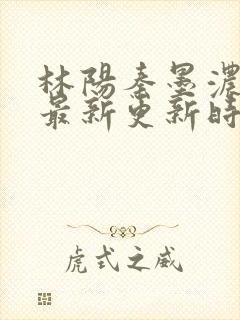 林陽秦墨濃
最新更新時
虎式之威